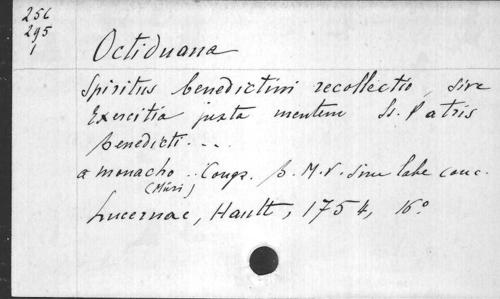 256
295
1
Octiduana
Spiritus benedictini recollectio, sive
Exercitia juxta mentem Ss. Patris
benedicti....
a monacho .. Congr. B. M. V. sine labe conc.
(Muri)
Lucernae, Hautt, 1754, 16°